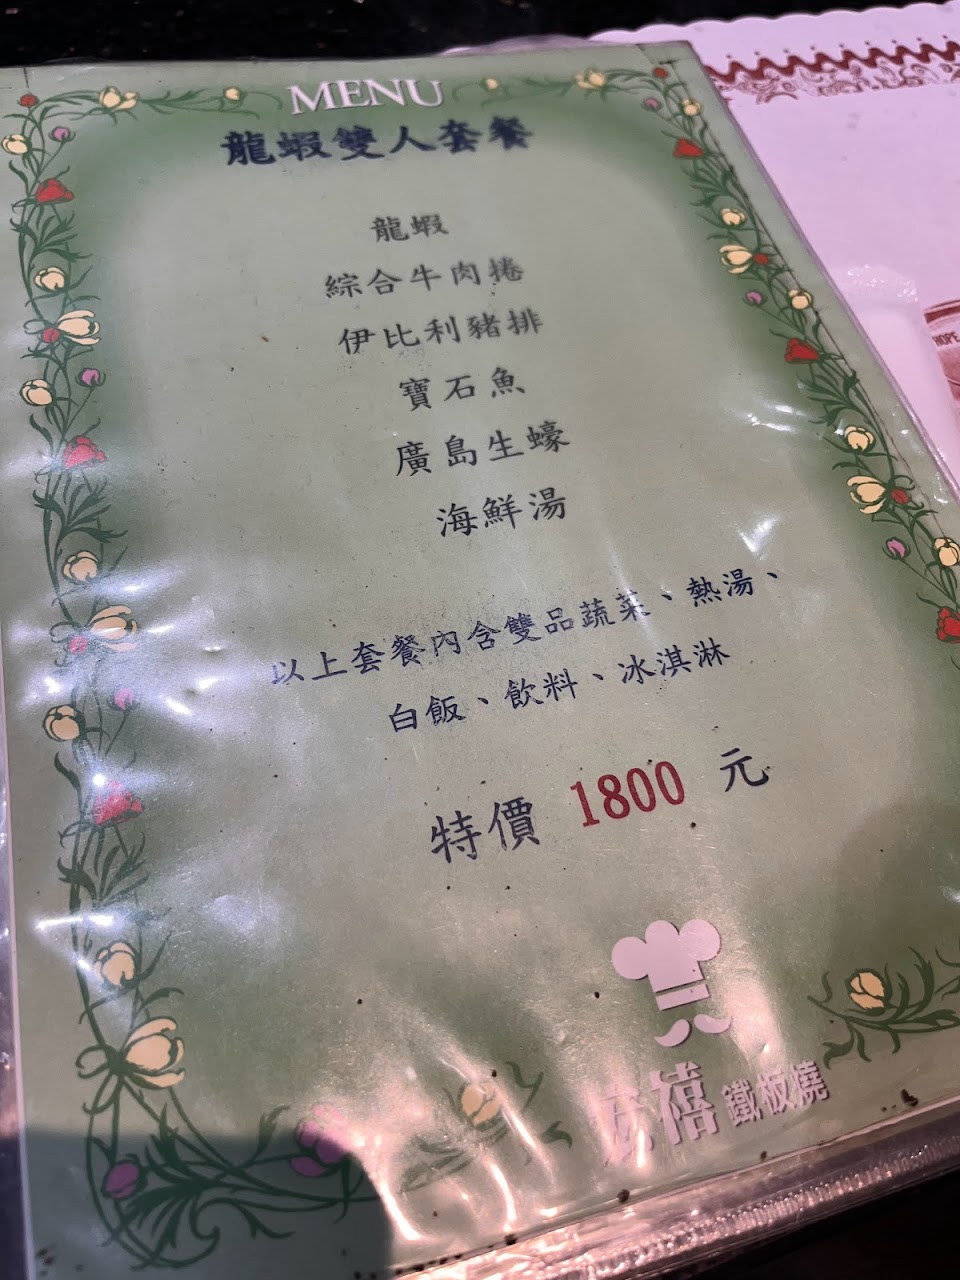 MENU
龍蝦雙人套餐
龍蝦
綜合牛肉捲
伊比利豬排
寶石魚
廣島生蠔
海鮮湯
以上套餐內含雙品蔬菜、熱湯、
白飯、飲料、冰淇淋
特價 1800 元
禧 鐵板燒
HOPE